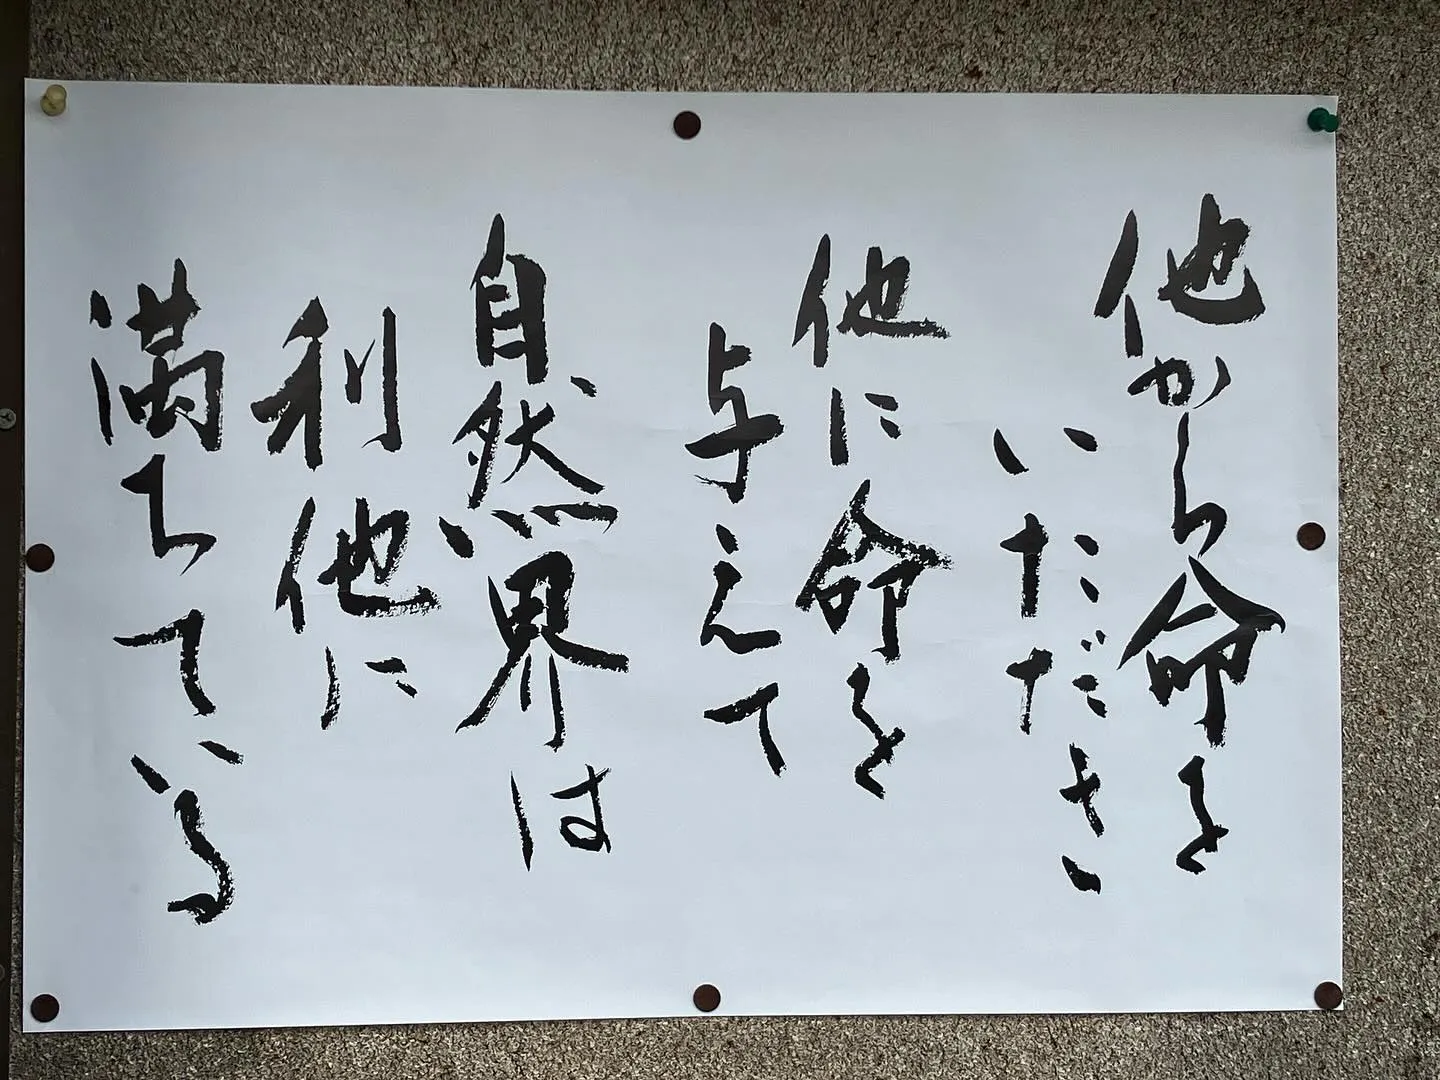 他から命を
いただき
他に命を
与えて
自然界は
利他に
満ちている